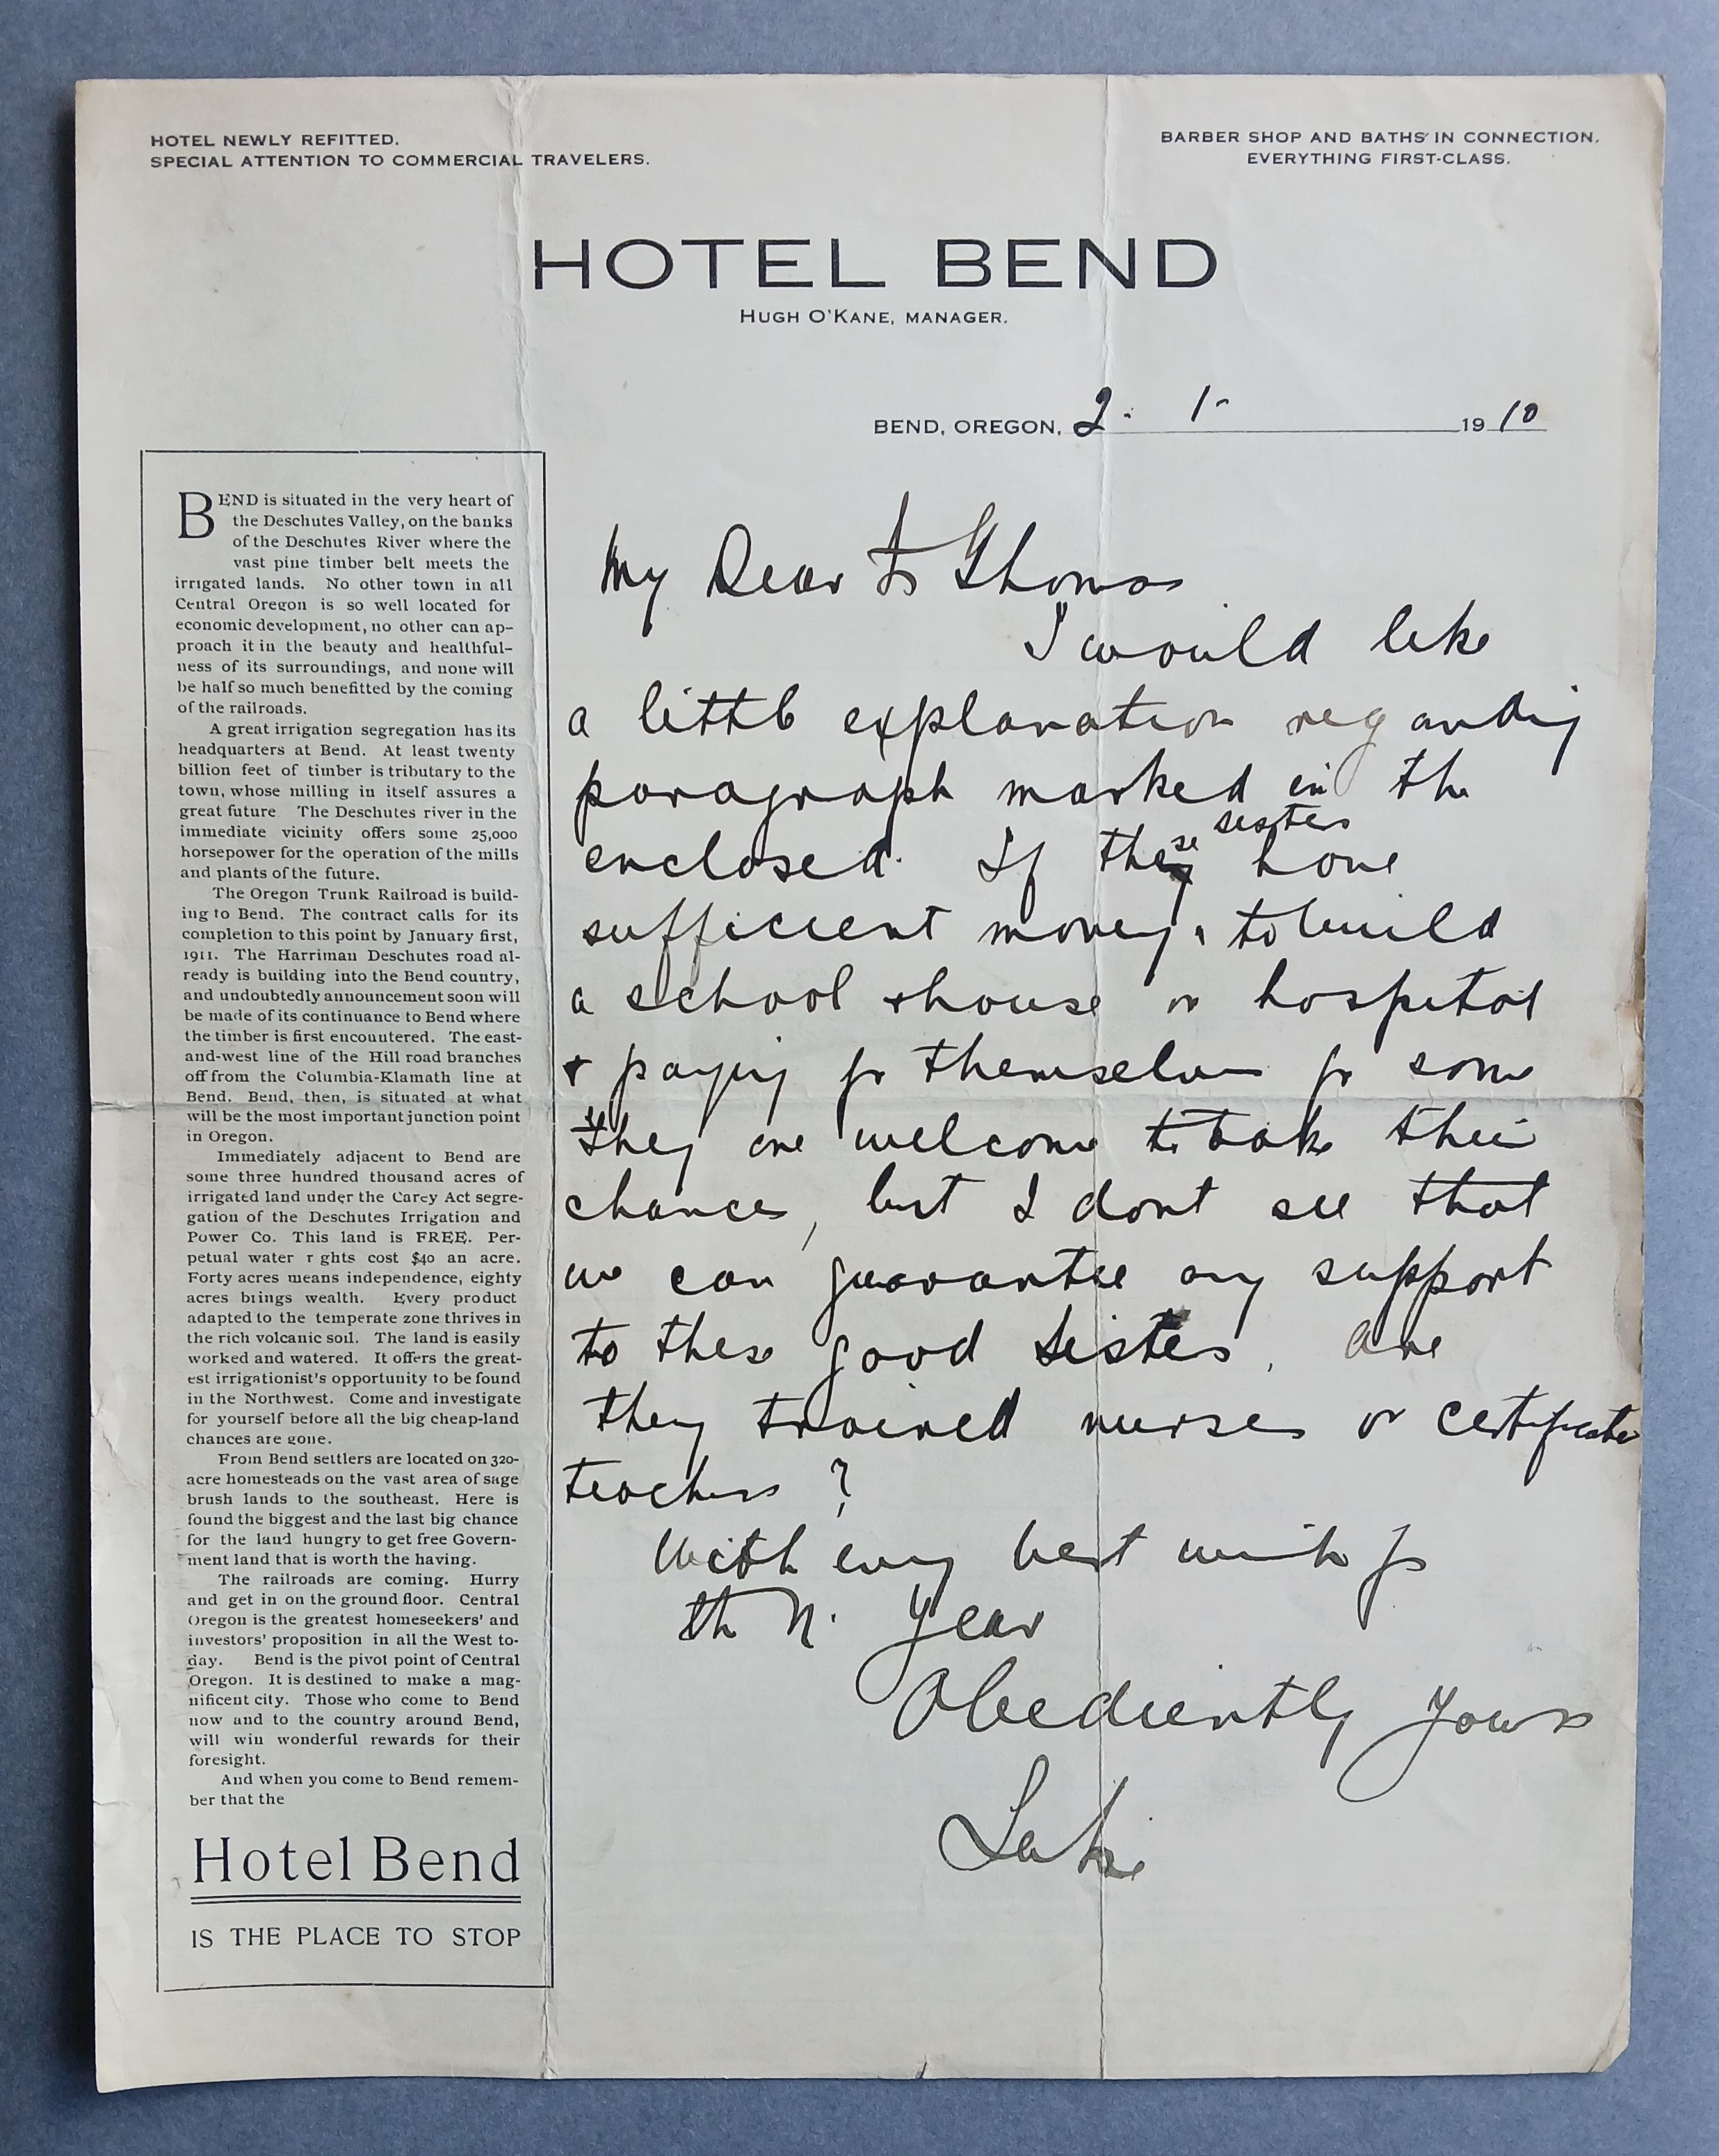 HOTEL NEWLY REFITTED.
SPECIAL ATTENTION TO COMMERCIAL TRAVELERS.
BARBER SHOP AND BATHS IN CONNECTION.
EVERYTHING FIRST-CLASS.
HOTEL BEND
HUGH O'KANE, MANAGER.
BEND, OREGON, 2 - 1 - 1910
BEND is situated in the very heart of
the Deschutes Valley, on the banks
of the Deschutes River where the
vast pine timber belt meets the
irrigated lands. No other town in all
Central Oregon is so well located for
economic development, no other can ap-
proach it in the beauty and healthful-
ness of its surroundings, and none will
be half so much benefitted by the coming
of the railroads.
A great irrigation segregation has its
headquarters at Bend. At least twenty
billion feet of timber is tributary to the
town, whose milling in itself assures a
great future The Deschutes river in the
immediate vicinity offers some 25,000
horsepower for the operation of the mills
and plants of the future.
The Oregon Trunk Railroad is build-
ing to Bend. The contract calls for its
completion to this point by January first,
1911. The Harriman Deschutes road al-
ready is building into the Bend country,
and undoubtedly announcement soon will
be made of its continuance to Bend where
the timber is first encountered. The east-
and-west line of the Hill road branches
off from the Columbia-Klamath line at
Bend. Bend, then, is situated at what
will be the most important junction point
in Oregon.
Immediately adjacent to Bend are
some three hundred thousand acres of
irrigated land under the Carey Act segre-
gation of the Deschutes Irrigation and
Power Co. This land is FREE. Per-
petual water r ghts cost $40 an acre.
Forty acres means independence, eighty
acres brings wealth. Every product
adapted to the temperate zone thrives in
the rich volcanic soil. The land is easily
worked and watered. It offers the great-
est irrigationist's opportunity to be found
in the Northwest. Come and investigate
for yourself before all the big cheap-land
chances are gone.
From Bend settlers are located on 320-
acre homesteads on the vast area of sage
brush lands to the southeast. Here is
found the biggest and the last big chance
for the land hungry to get free Govern-
ment land that is worth the having.
The railroads are coming. Hurry
and get in on the ground floor. Central
Oregon is the greatest homeseekers' and
investors' proposition in all the West to-
day. Bend is the pivot point of Central
Oregon. It is destined to make a mag-
nificent city. Those who come to Bend
now and to the country around Bend,
will win wonderful rewards for their
foresight.
And when you come to Bend remem-
ber that the
Hotel Bend
IS THE PLACE TO STOP
My Dear Fr Thomas
I would like
a little explanation regarding
paragraph marked in the
enclosed. If these sisters have
sufficient money to build
a school house or hospital
+ paying for themselves for same
they are welcome to take their
chances, but I dont see that
we can guarantee any support
to these good sisters. Are
they trained nurses or certificate
teachers ?
With every best wish for
the N. Year
Obediently yours
Luke